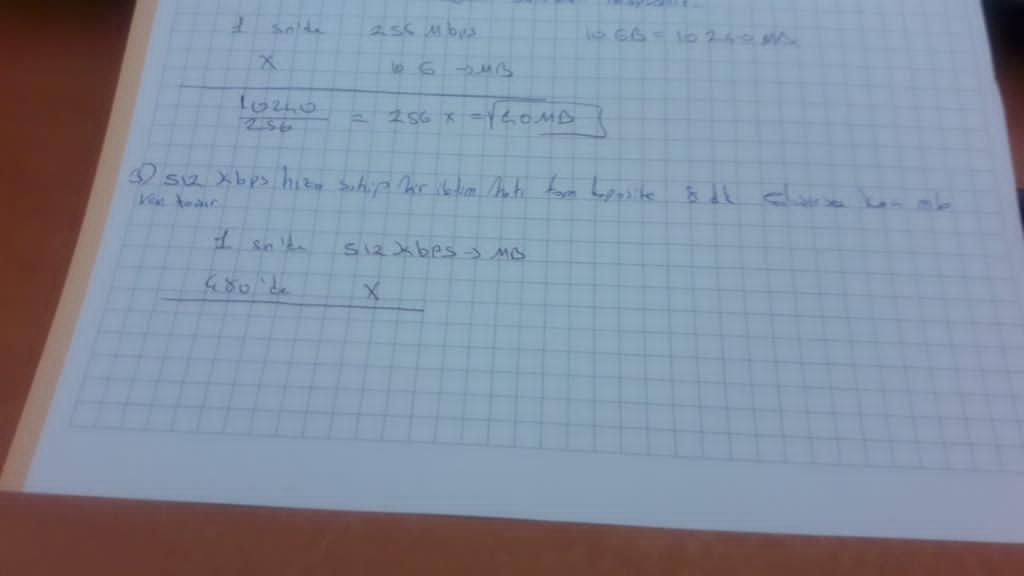 1 sn'de 256 Mbps 10 GB = 10240 MB
X 10 G → MB
10240
256 = 256 x = 40 MB
3) 512 Kbps hıza sahip bir iletim hattı tam kapasite 8 dk kaç mb
veri
1 sn'de 512 Kbps → MB
480'de X